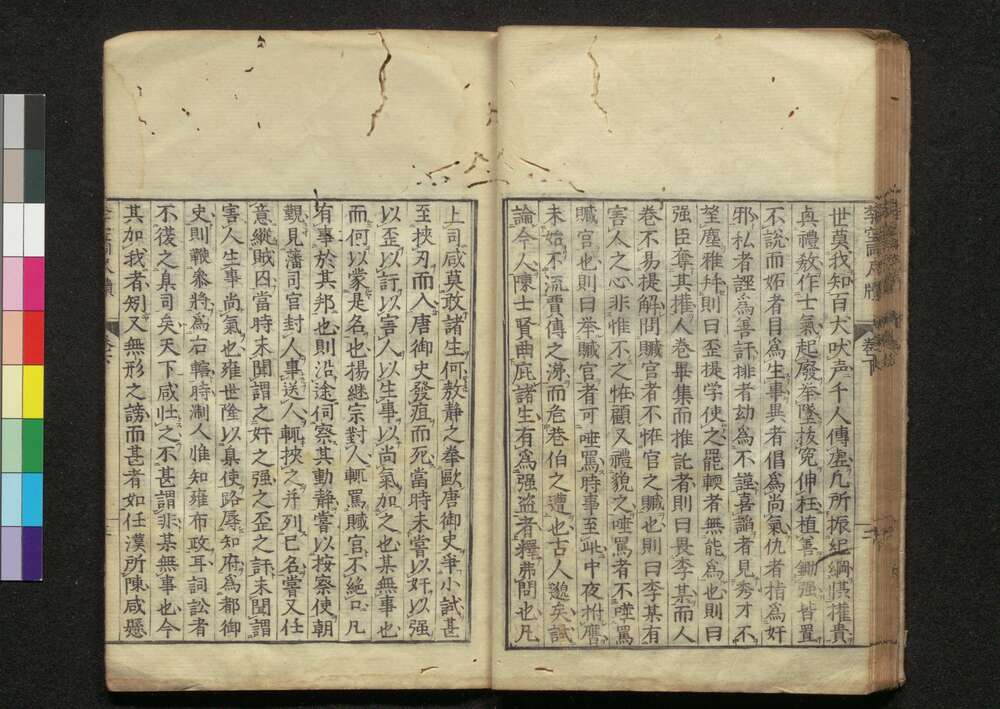 世莫我知百犬吠声千人傳虚凢所振紀綱惧權貴
真禮敎作士氣起廢举墜拔寃伸枉植善鋤强皆置
不說而妬者目爲生事異者倡爲尚氣仇者指爲奸
邪私者誣爲害訐排者劾爲不謹喜謟者見秀才不
望塵雅拜則曰歪提学使之罷輭者無能爲也則曰
强臣奪其權人卷畢集而推託者則曰畏李某而人
卷不易提解問贓官者不恠官之贓也則曰李某有
害人之心非惟不之恠顧又禮貌之唾罵者不唾罵
贓官也則曰举贓官者可唾罵時事至此中夜拊膺
未始不流賈傅之涕而危巷伯之遭也古人邈矣試
論今人陳士賢曲庇諸生有爲强盗者釋弗問也凡
李空同尺牘 卷下 二
上司咸莫敢諸生何敖静之拳歐唐御史爭小試甚
至挾刃而入唐御史發疽而死當時未甞以奸以强
以歪以訐以害人以生事以尚氣加之也某無事也
而何以蒙是名也揚継宗對人輒罵贓官不絶口凡
有事於其邦也則沿途伺察其動静嘗以按察使朝
覲見藩司官封人事送人輒挾之并列已名嘗又任
意縱賊囚當時未聞謂之奸之强之歪之訐未聞謂
害人生事尚氣也雍世隆以臬使路辱知府爲都御
史則鞭叅將爲右轄時淛人惟知雍布政耳詞訟者
不復之臬司矣天下咸壮之不甚謂非某無事也今
其加我者矧又無形之謗而甚者如任漢所陳咸懸